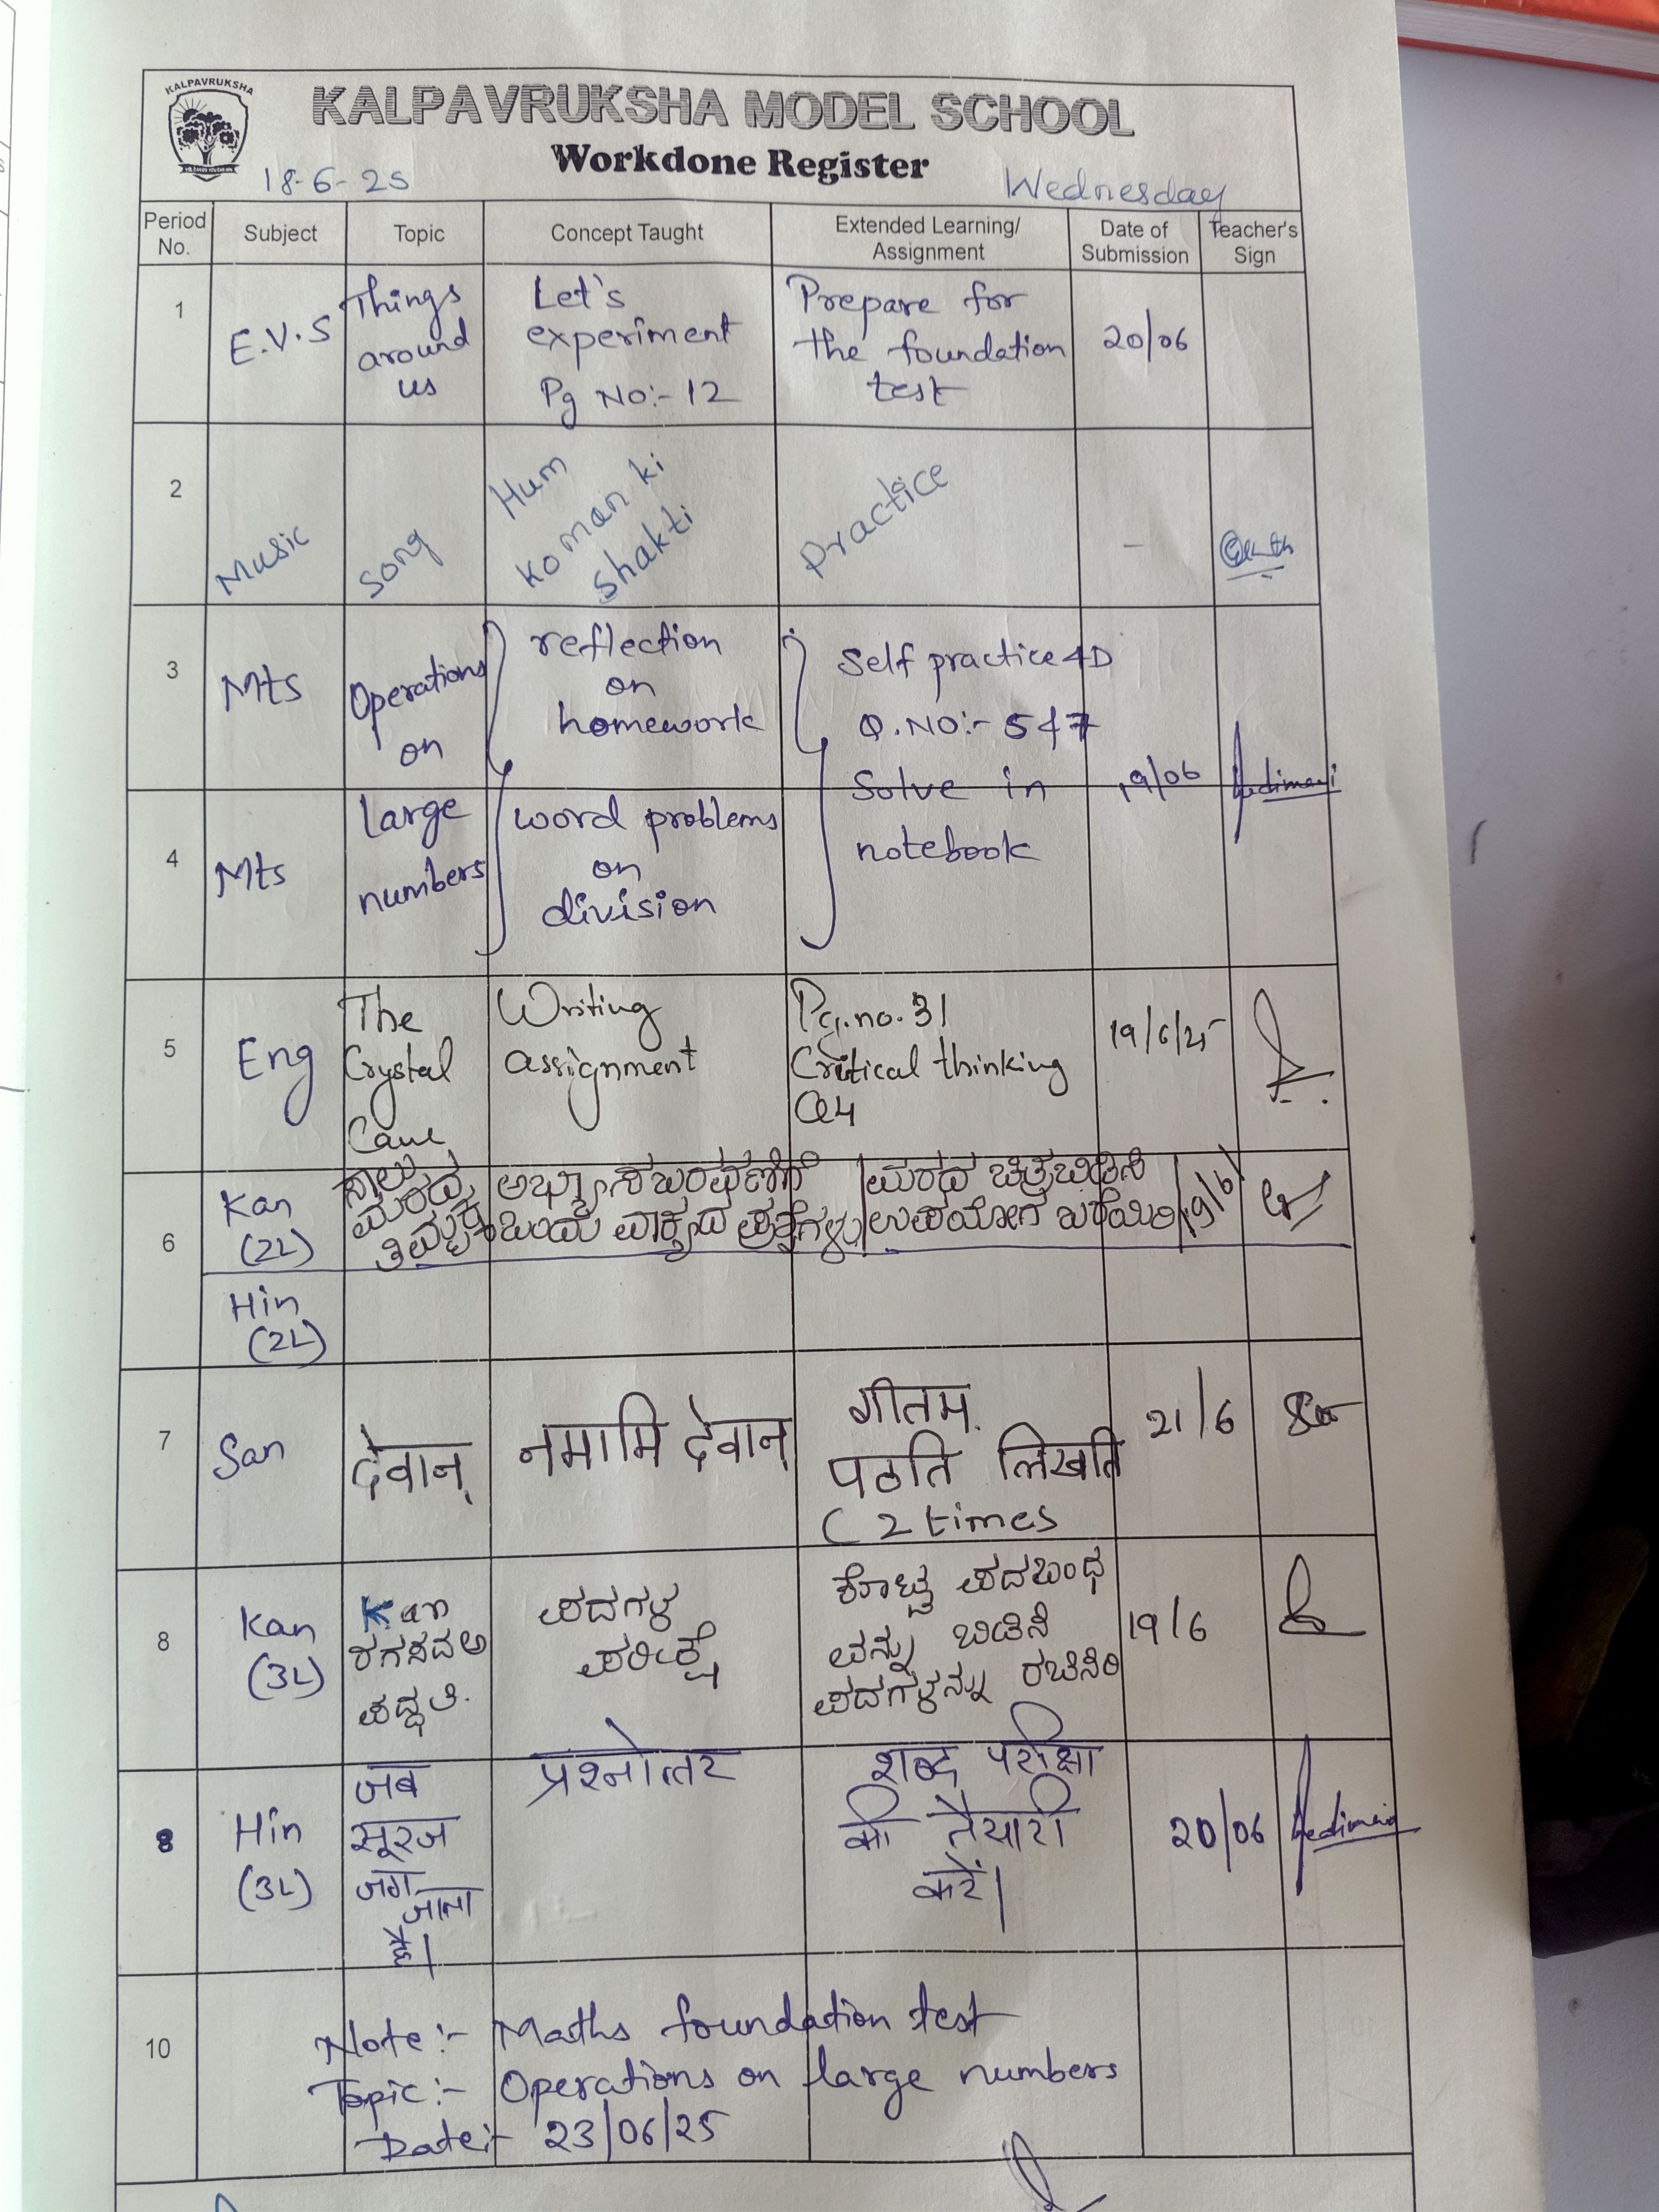 KALPAVRUKSHA
KALPAVRUKSHA MODEL SCHOOL
Workdone Register
18-6-25 Wednesday
Period No. Subject Topic Concept Taught Extended Learning/ Assignment Date of Submission Teacher's Sign
1 E.V.S Things around us Let's experiment Pg No:- 12 Prepare for the foundation test 20/06
2 Music Song Hum ko man ki shakti Practice -
3 Mts Operations on reflection on homework Self practice 4D Q.NO:- 5 & 7
4 Mts large numbers word problems on division Solve in notebook 19/06
5 Eng The Crystal Cave Writing assignment Pg.no.31 Critical thinking Q4 19/6/25
6 Kan (2L) ಸಾಲು ಮರದ ತಿಮ್ಮಕ್ಕ ಅಭ್ಯಾಸ ಬರವಣಿಗೆ ಒಂದು ವಾಕ್ಯದ ಪ್ರಶ್ನೆಗಳು ಮರದ ಚಿತ್ರ ಬಿಡಿಸಿ ಉಪಯೋಗ ಬರೆಯಿರಿ 19/6/
Hin (2L)
7 San देवान् नमामि देवान् गीतम् पठति लिखति (2 times 21/6
8 Kan (3L) Kan ರಗಸದಅ ಪದ್ಧತಿ. ಪದಗಳ ಪರೀಕ್ಷೆ ಕೊಟ್ಟ ಪದಬಂಧ ವನ್ನು ಬಿಡಿಸಿ ಪದಗಳನ್ನು ರಚಿಸಿರಿ 19/6
8 Hin (3L) जब सूरज जग जाता है। प्रश्नोत्तर शब्द परीक्षा की तैयारी करें। 20/06
10 Note:- Maths foundation test
Topic:- Operations on large numbers
Date:- 23/06/25